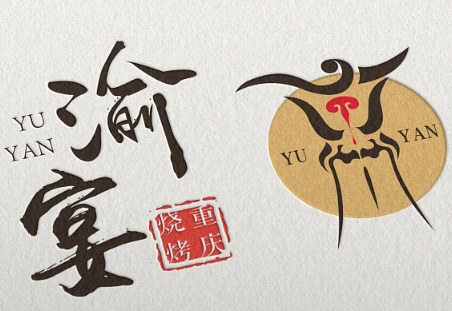 渝宴
YU
YAN
重庆
烧烤
YU YAN